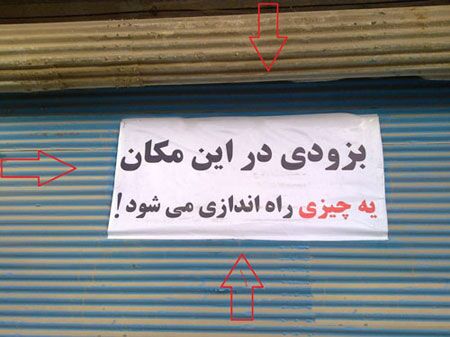 بزودی در این مکان
یه چیزی راه اندازی می شود!